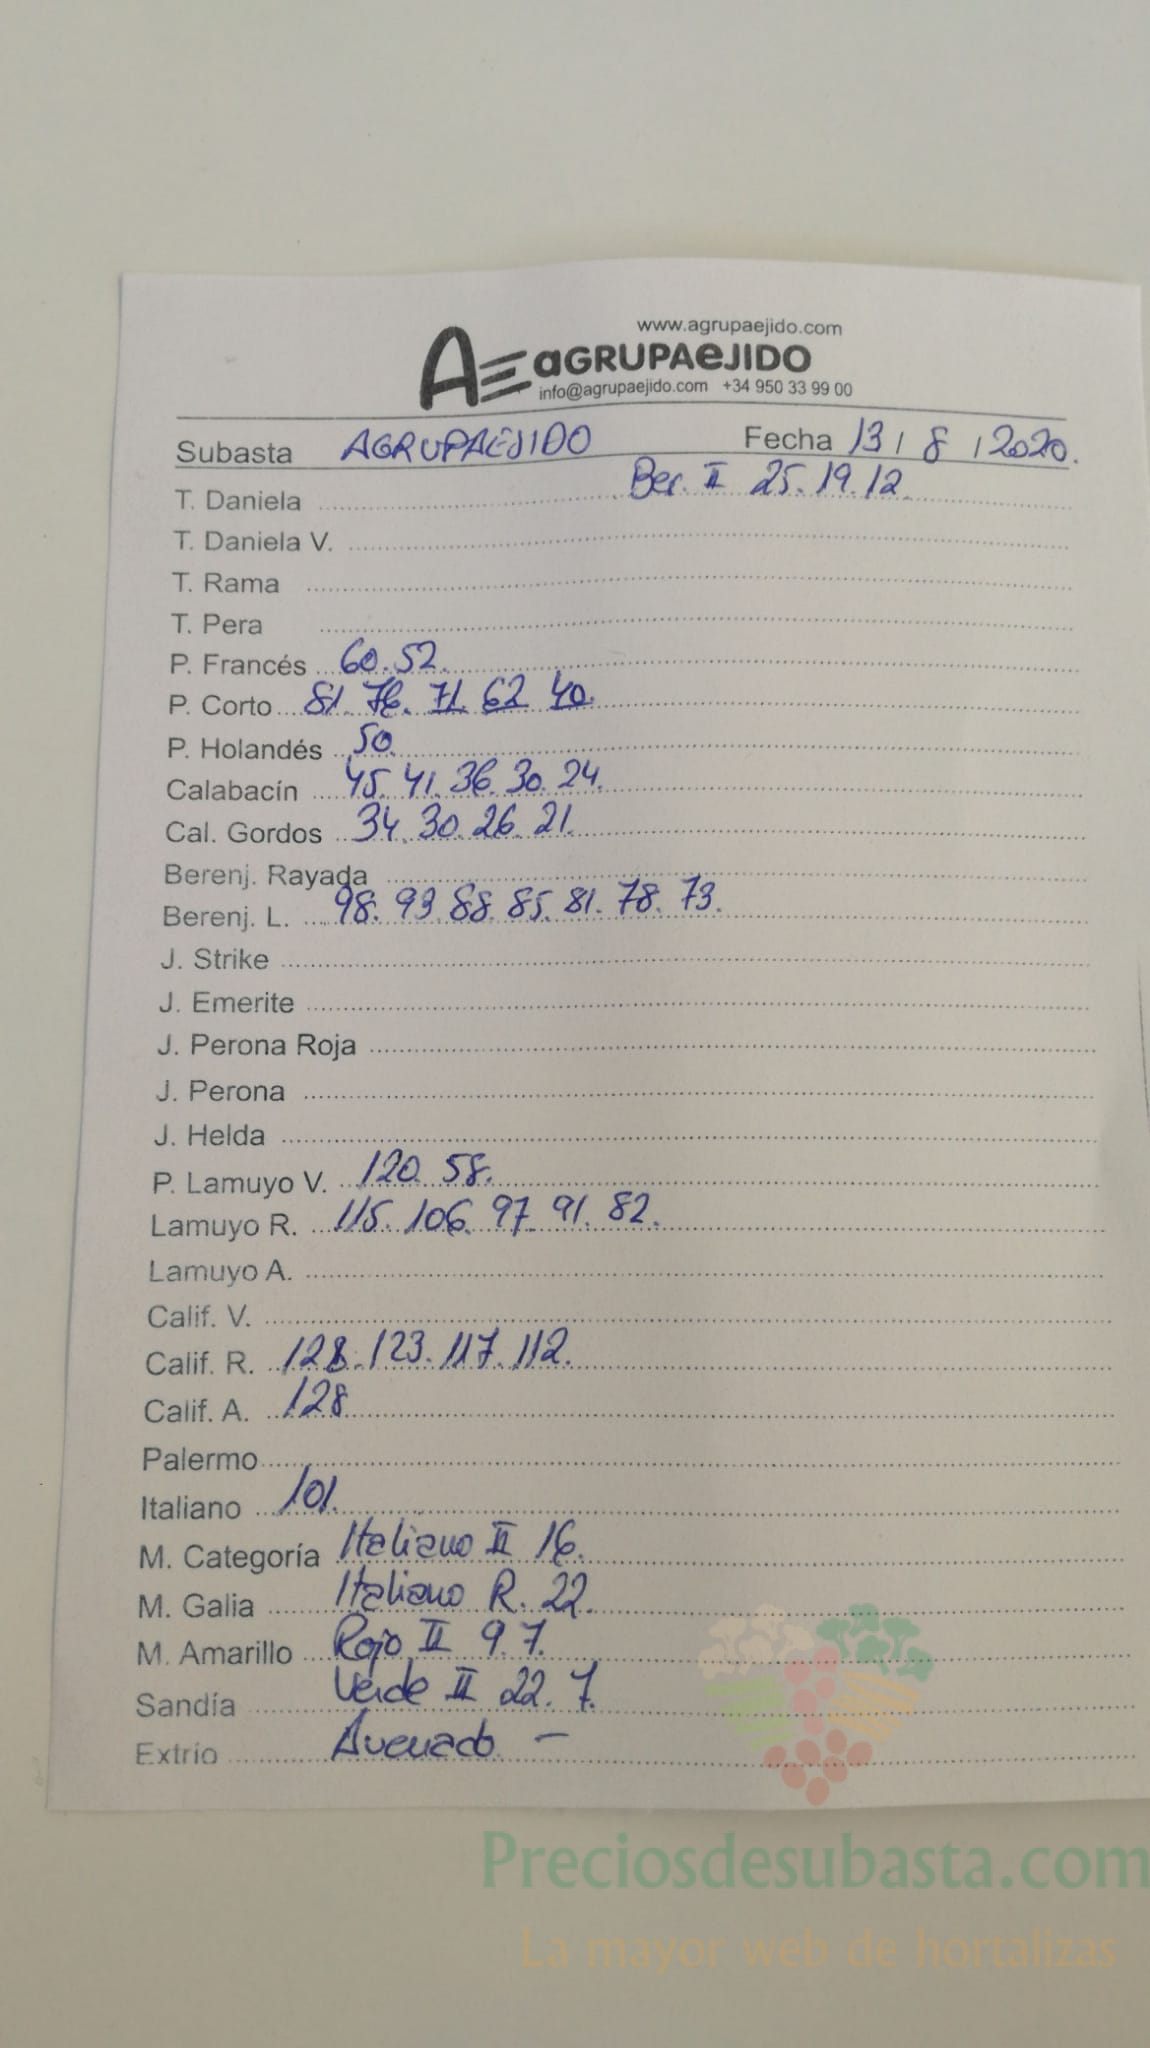 www.agrupaejido.com
AE aGRUPAeJIDO
info@agrupaejido.com +34 950 33 99 00
Subasta AGRUPAEJIDO Fecha 13 / 8 / 2020.
Ber. II 25. 19. 12.
T. Daniela
T. Daniela V.
T. Rama
T. Pera
P. Francés 60. 52.
P. Corto 81. 76. 71. 62 40.
P. Holandés 50.
Calabacín 45. 41. 36. 30. 24.
Cal. Gordos 34. 30. 26. 21.
Berenj. Rayada
Berenj. L. 98. 93. 88. 85. 81. 78. 73.
J. Strike
J. Emerite
J. Perona Roja
J. Perona
J. Helda
P. Lamuyo V. 120. 58.
Lamuyo R. 115. 106. 97. 91. 82.
Lamuyo A.
Calif. V.
Calif. R. 128. 123. 117. 112.
Calif. A. 128
Palermo
Italiano 101.
M. Categoría Italiano II 16.
M. Galia Italiano R. 22.
M. Amarillo Rojo II 9. 7.
Sandía Verde II 22. 7.
Extrío Avenado —
Preciosdesubasta.com
La mayor web de hortalizas